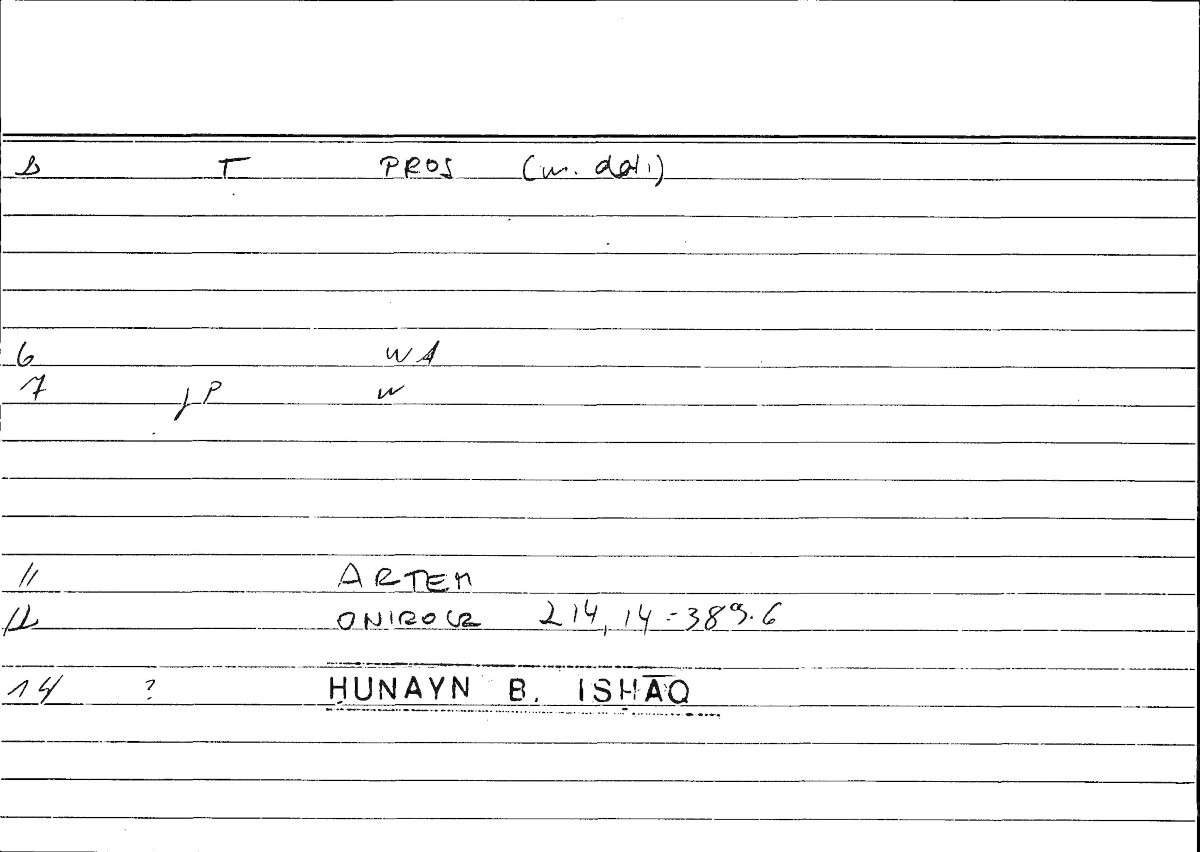 T PROS (w. dat.)
6 WA
7 fP w
11 ARTEM
12 ONIROCR 214,14 = 389.6
14 ? ḤUNAYN B. ISḤĀQ